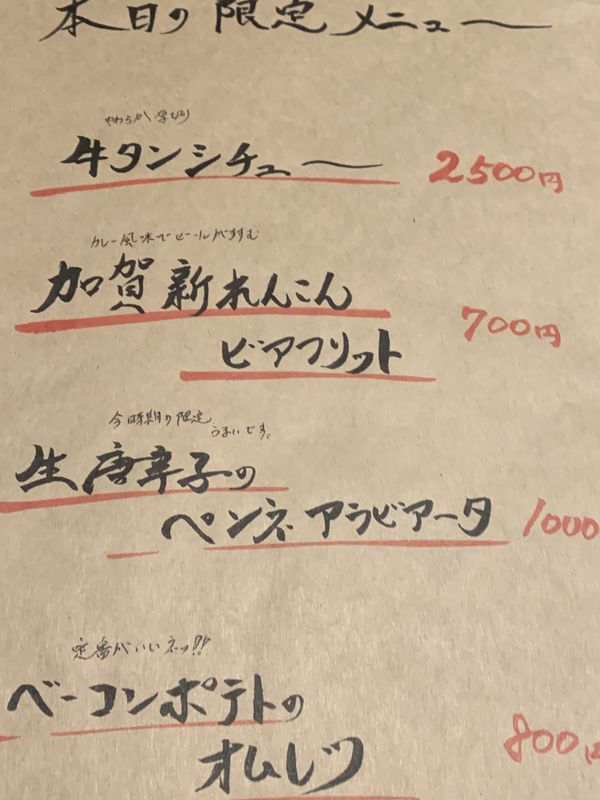 本日の限定メニュー
やわらか厚切り
牛タンシチュー 2500円
カレー風味でビールがすすむ
加賀新れんこん
ビアフリット 700円
今時期の限定
うまいです。
生唐辛子の
ペンネアラビアータ 1000
定番がいいネッ!!
ベーコンポテトの
オムレツ 800円